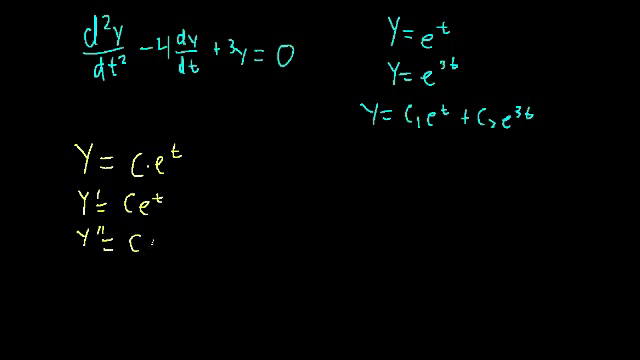 d²y/dt² - 4 dy/dt + 3y = 0
y = e^t
y = e^3t
y = c₁e^t + c₂e^3t
y = c·e^t
y' = ce^t
y'' = c